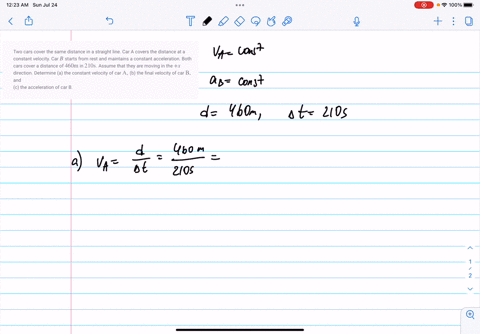 12:23 AM Sun Jul 24
Two cars cover the same distance in a straight line. Car A covers the distance at a
constant velocity. Car B starts from rest and maintains a constant acceleration. Both
cars cover a distance of 460m in 210s. Assume that they are moving in the +x
direction. Determine (a) the constant velocity of car A, (b) the final velocity of car B,
and
(c) the acceleration of car B
v_A = const
a_B = const
d = 460m, Δt = 210s
a) v_A = d/Δt = 460m/210s =
1
2